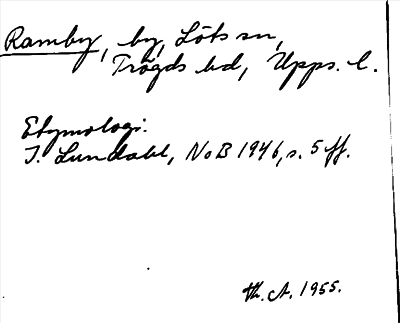 Ramby, by, Löts sn,
Trögds hd, Upps. l.
Etymologi:
I. Lundahl, NoB 1946, s. 5 ff.
Th. A. 1955.